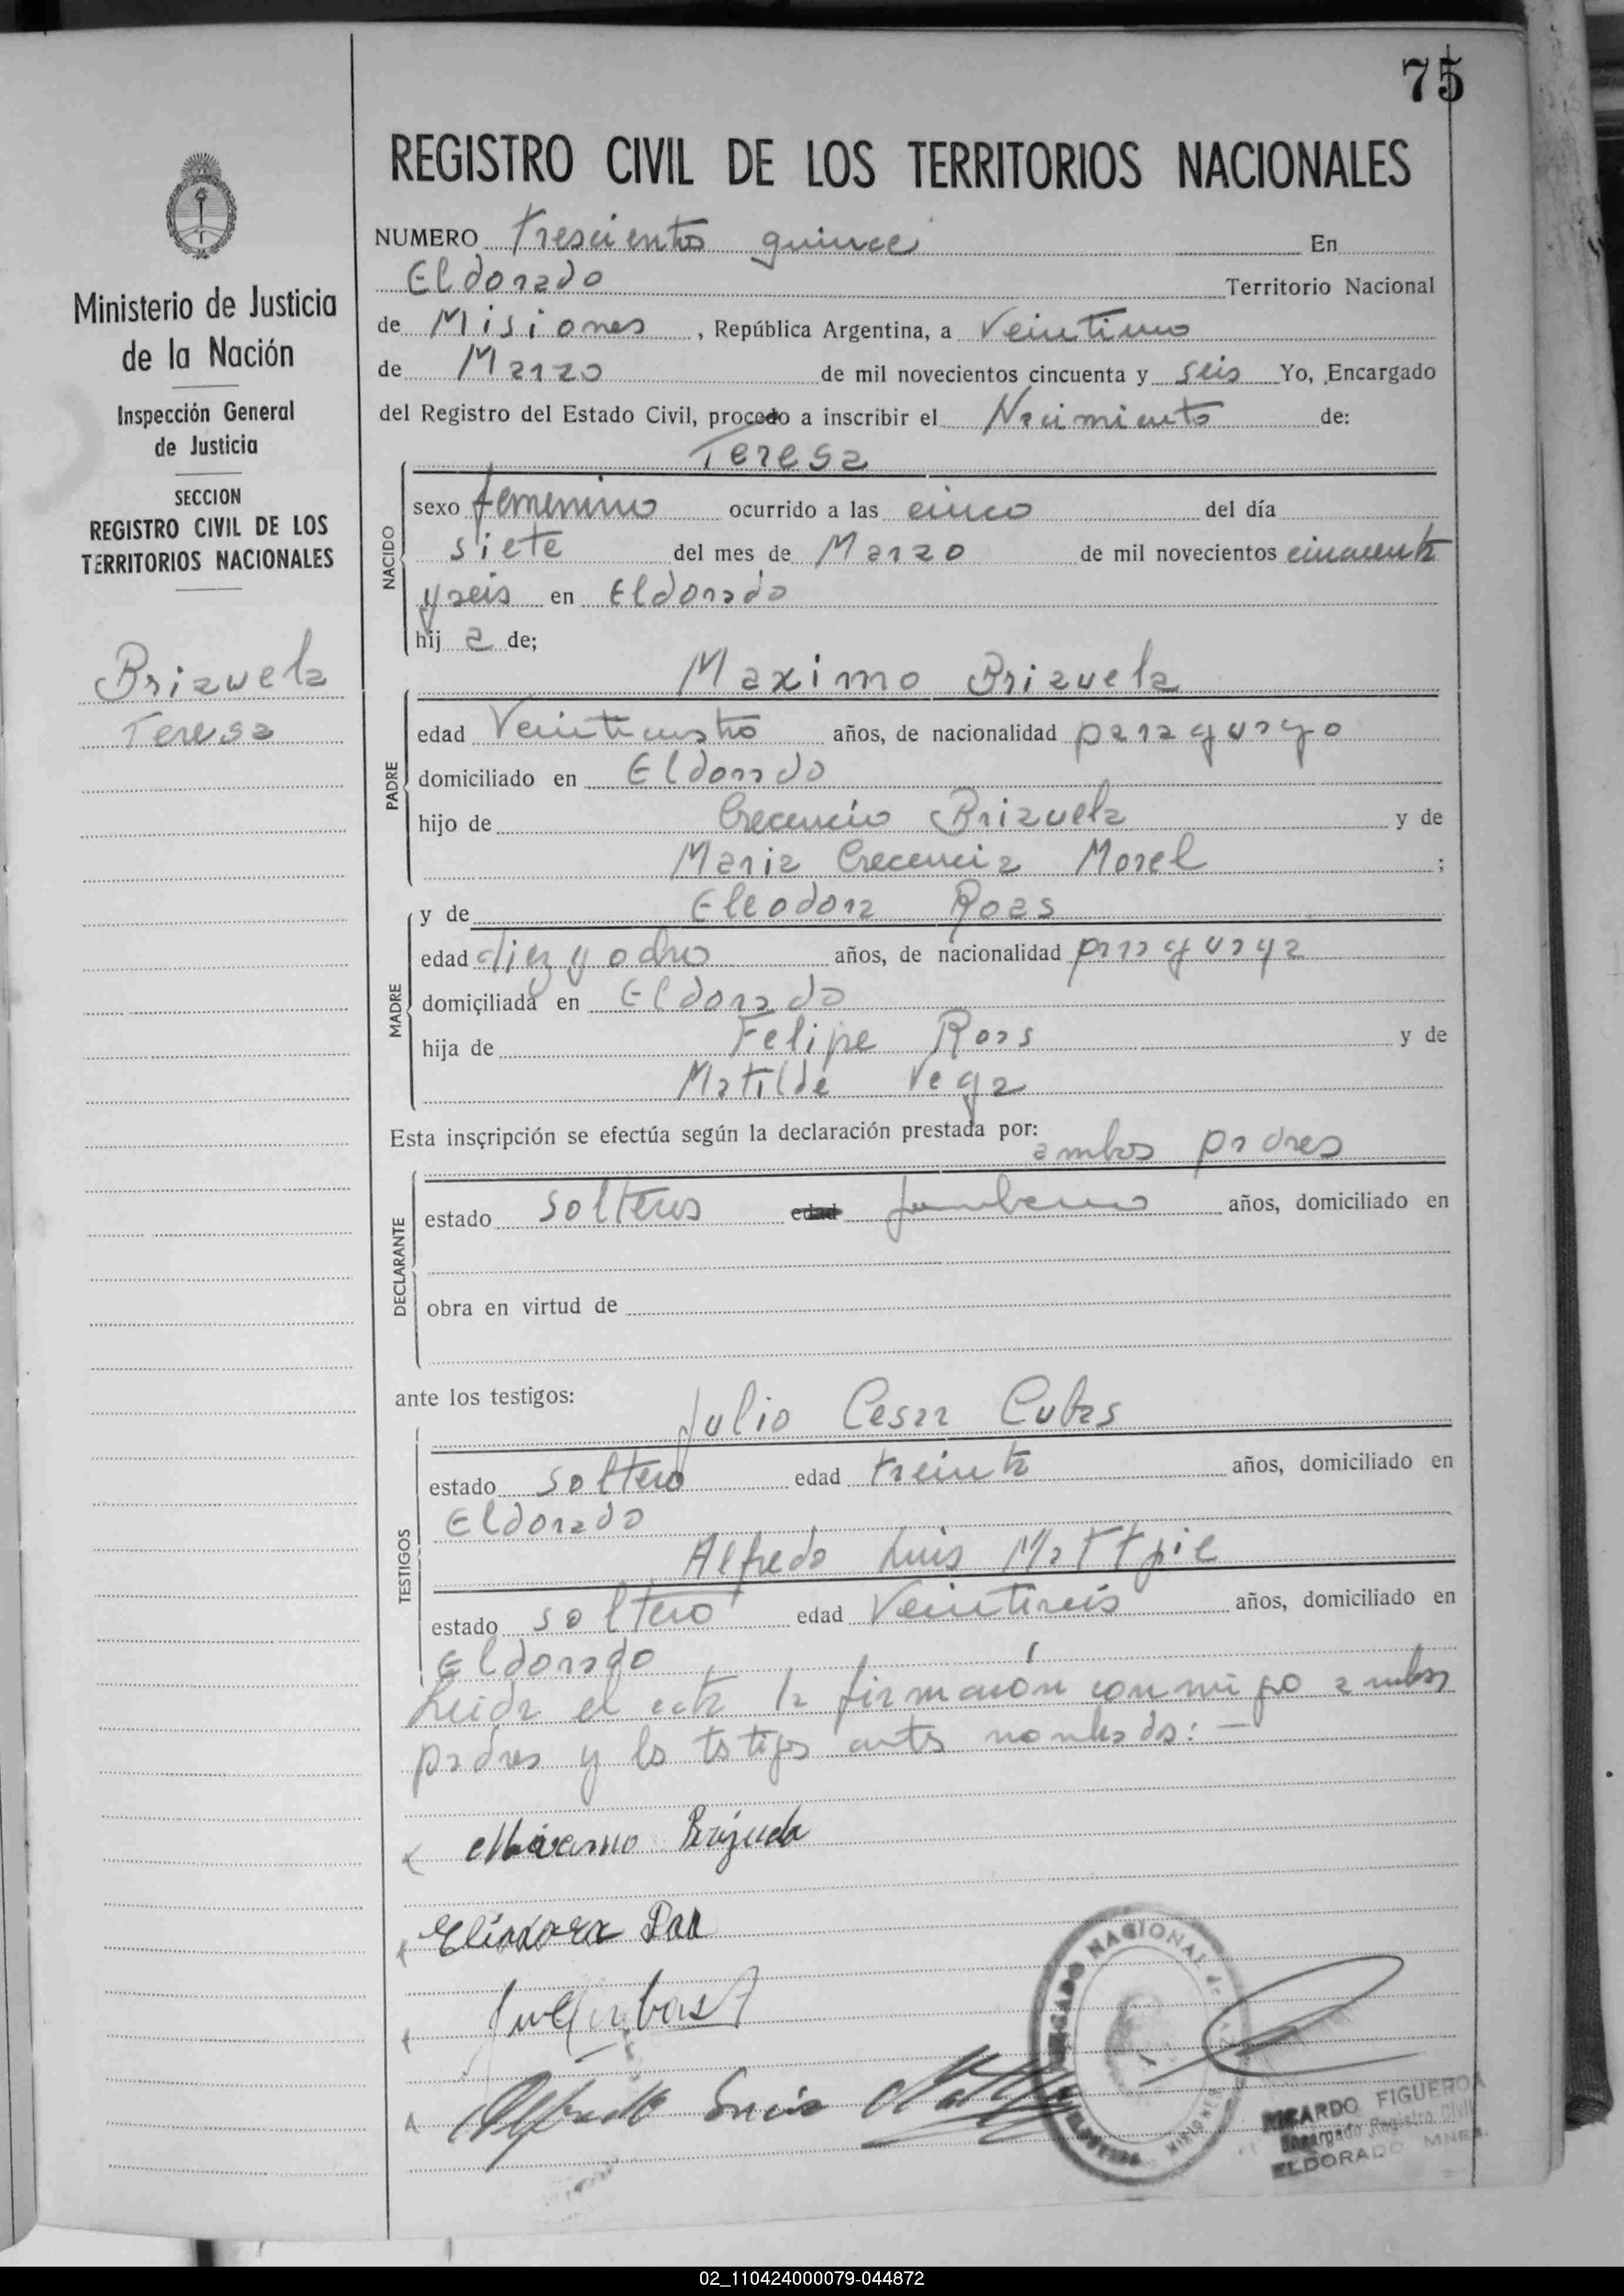 75
REGISTRO CIVIL DE LOS TERRITORIOS NACIONALES
Ministerio de Justicia
de la Nación
Inspección General
de Justicia
SECCION
REGISTRO CIVIL DE LOS
TERRITORIOS NACIONALES
Brizuela
Teresa
NUMERO trescientos quince En
Eldorado Territorio Nacional
de Misiones, República Argentina, a Veintiuno
de Marzo de mil novecientos cincuenta y seis Yo, Encargado
del Registro del Estado Civil, procedo a inscribir el Nacimiento de:
Teresa
NACIDO
sexo femenino ocurrido a las cinco del día
siete del mes de Marzo de mil novecientos cincuenta
y seis en Eldorado
hij a de;
Maximo Brizuela
PADRE
edad Veinticuatro años, de nacionalidad paraguayo
domiciliado en Eldorado
hijo de Crecencio Brizuela y de
Maria Crecencia Morel ;
y de Eleodora Roas
MADRE
edad diez y ocho años, de nacionalidad paraguaya
domiciliada en Eldorado
hija de Felipe Roas y de
Matilde Vega
Esta inscripción se efectúa según la declaración prestada por:
ambos padres
DECLARANTE
estado solteros edad años, domiciliado en
obra en virtud de
ante los testigos:
Julio Cesar Cubas
TESTIGOS
estado soltero edad treinta años, domiciliado en
Eldorado
Alfredo Luis
estado soltero edad Veintiseis años, domiciliado en
Eldorado
Leida el acta la firmaron conmigo ambos
padres y los testigos antes nombrados: —
Maximo Brizuela
Eliodora
Alfredo Luis
NACIONAL DE
MISIONES
RICARDO FIGUEROA
Encargado Registro Civil
ELDORADO MNES.
02_110424000079-044872